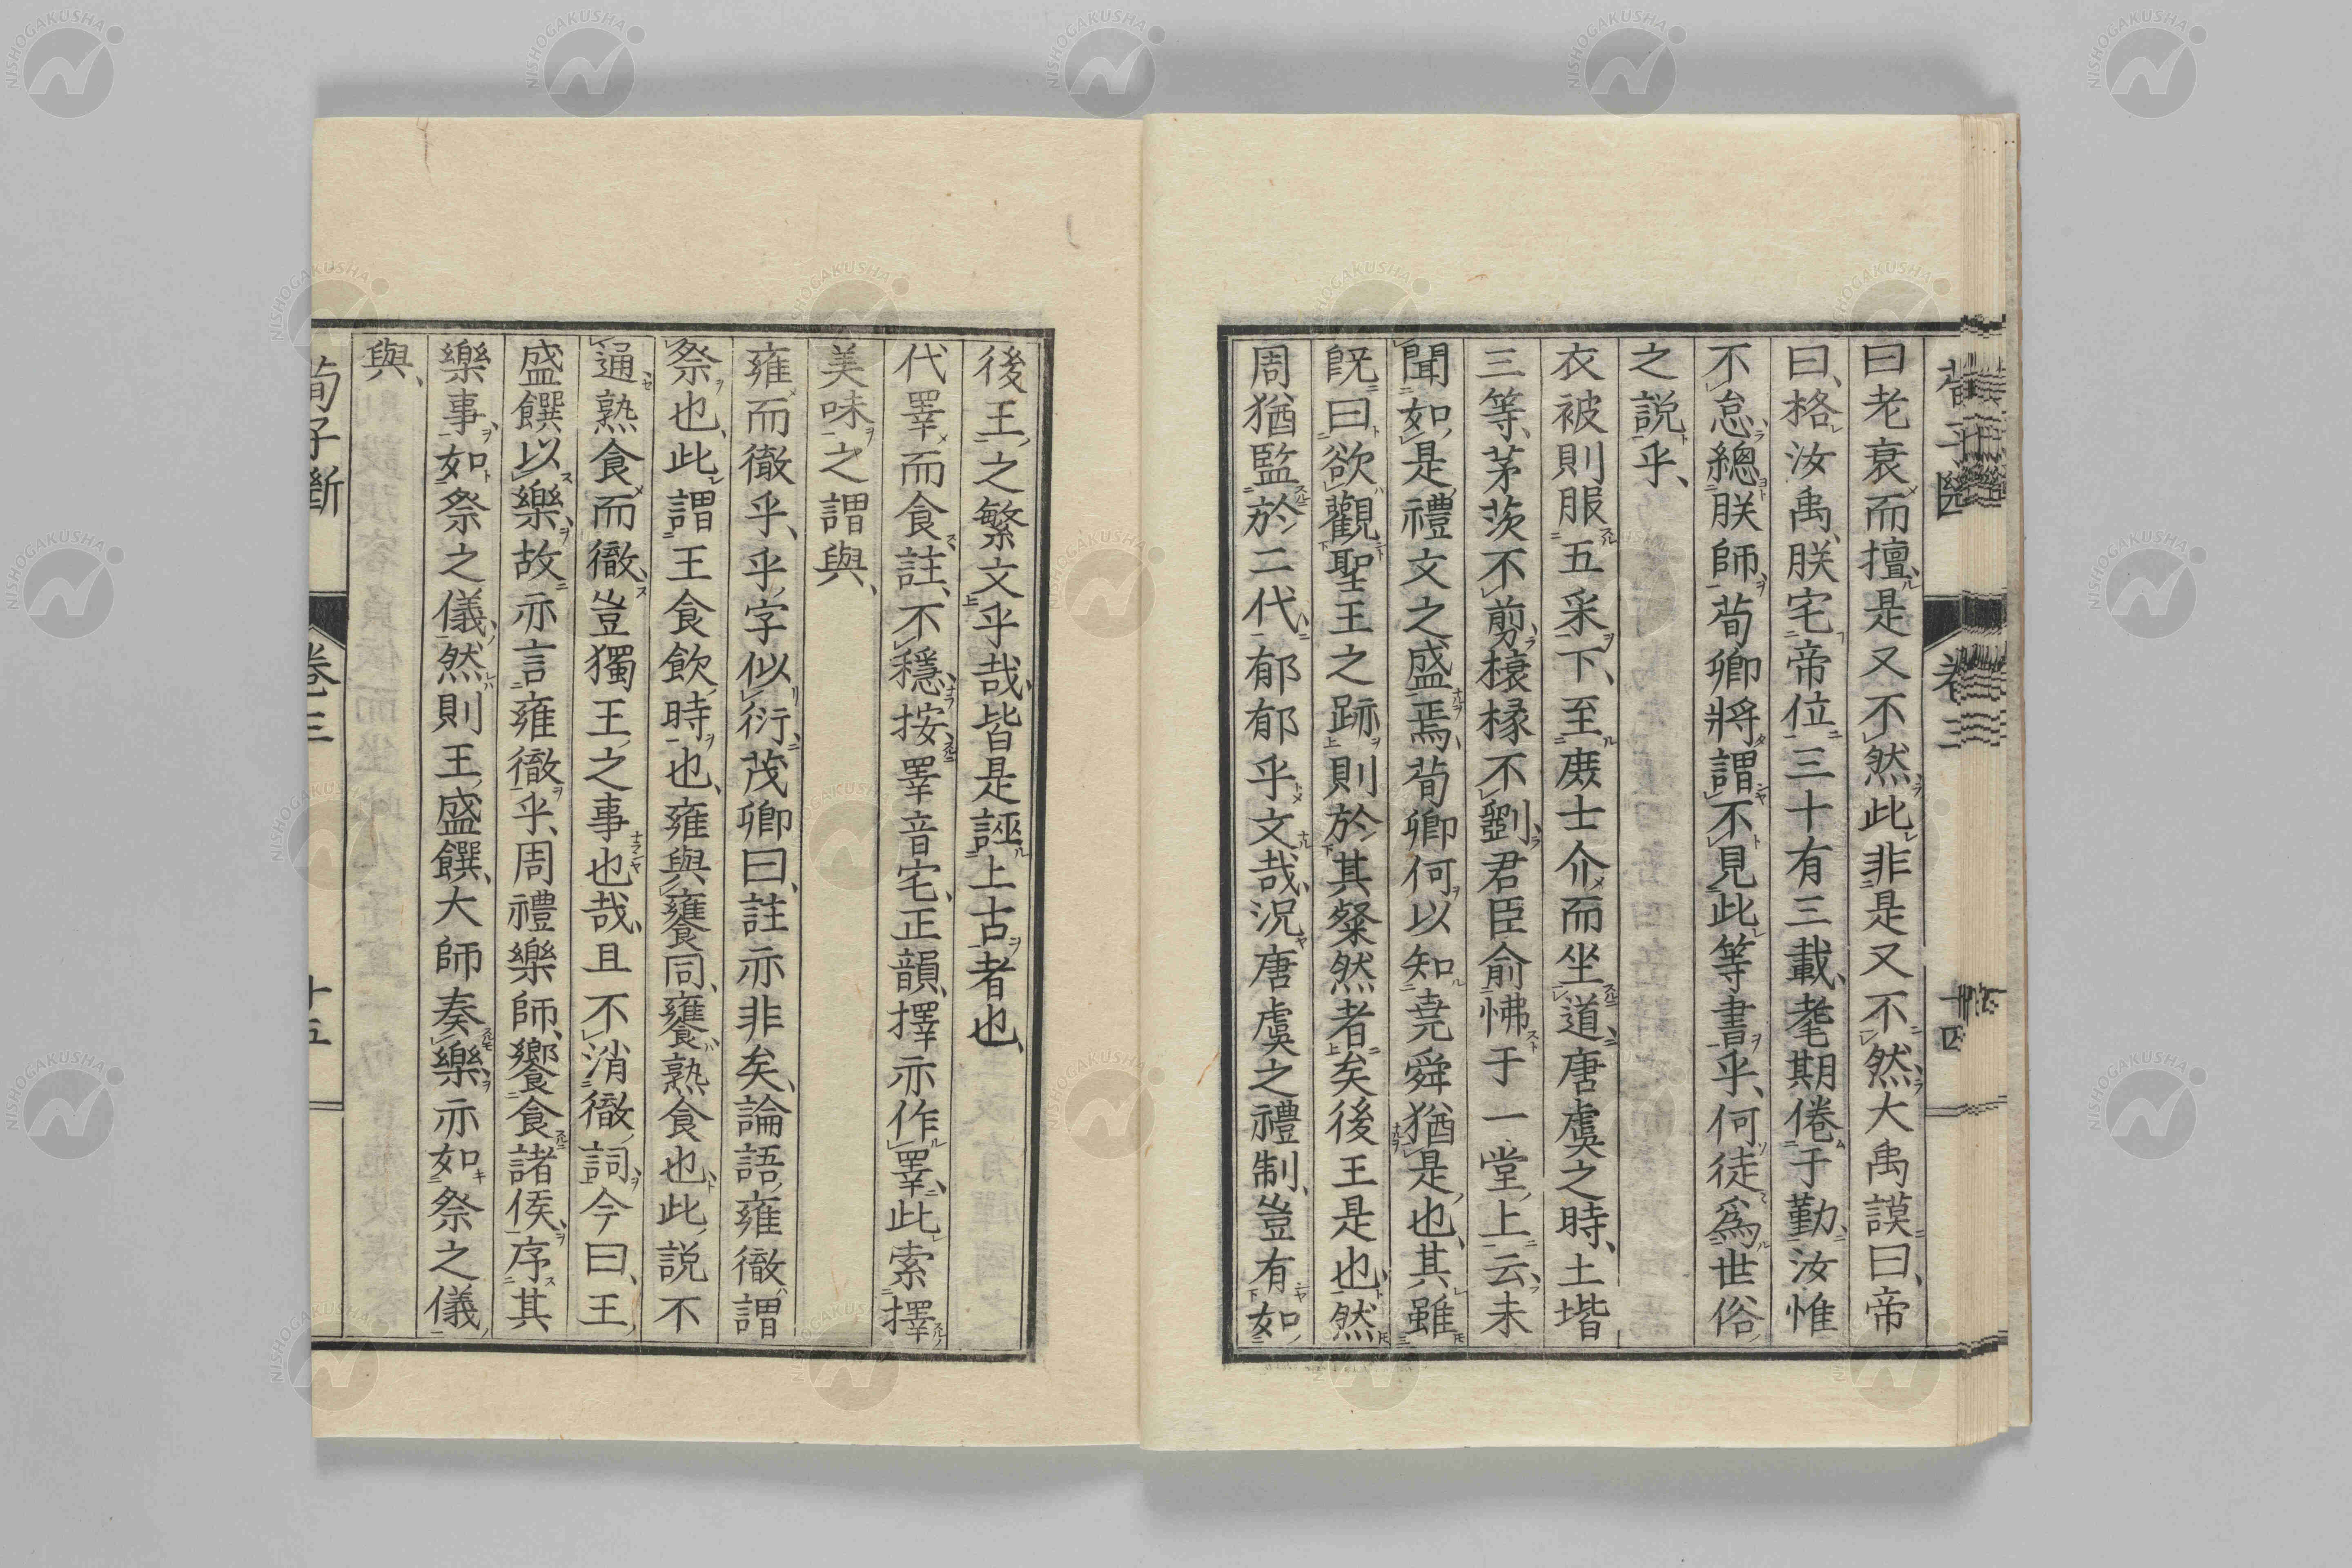 曰老衰而擅是又不然此非是又不然大禹謨曰、帝
曰、格汝禹、朕宅帝位三十有三載、耄期倦于勤、汝惟
不怠總朕師荀卿將謂不見此等書乎、何徒爲世俗
之說乎、
衣被則服五采下、至庻士介而坐道唐虞之時、土堦
三等、茅茨不剪榱椽不劉、君臣俞怫于一堂上云未
聞如是禮文之盛焉、荀卿何以知堯舜猶是也、其雖
旣曰欲觀聖王之跡則於其粲然者矣後王是也、然
周猶監於二代郁郁乎文哉、況唐虞之禮制、豈有如
後王之繁文乎哉、皆是誣上古者也、
代睪而食註、不穩按、睪音宅、正韻、擇亦作睪、此索擇
美味之謂與、
雍而徹乎、乎字似衍、茂卿曰、註亦非矣、論語雍徹謂
祭也、此謂王食飲時也、雍與饔同、饔熟食也、此說不
通熟食而徹、豈獨王之事也哉、且不消徹詞今曰、王
盛饌以樂、故亦言雍徹乎、周禮樂師、饗食諸侯、序其
樂事、如祭之儀、然則王盛饌、大師奏樂、亦如祭之儀
與、
荀子斷
卷三
十五
卷三
十四